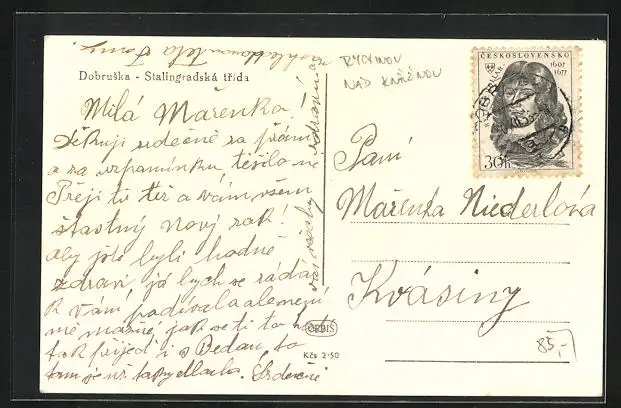 Dobruška - Stalingradská třída
Milá Mařenko!
Děkuji srdečně za přání
a za vzpamínku, těšilo mě
Přeji to též a vám všem
štastný nový rok!
aby jste byli hodně
zdraví já bych se ráda
k vám podívala ale není
mě možné, jak se ti to
tak přijed i s
tam je už Srdečně
vás všechny
zdravím a
RYCHNOV
NAD KNĚŽNOU
ČESKOSLOVENSKO
1607
1677
30h
Paní
Mařenka Niederlová
Kvásiny
ORBIS
Kčs 2·50
85,-